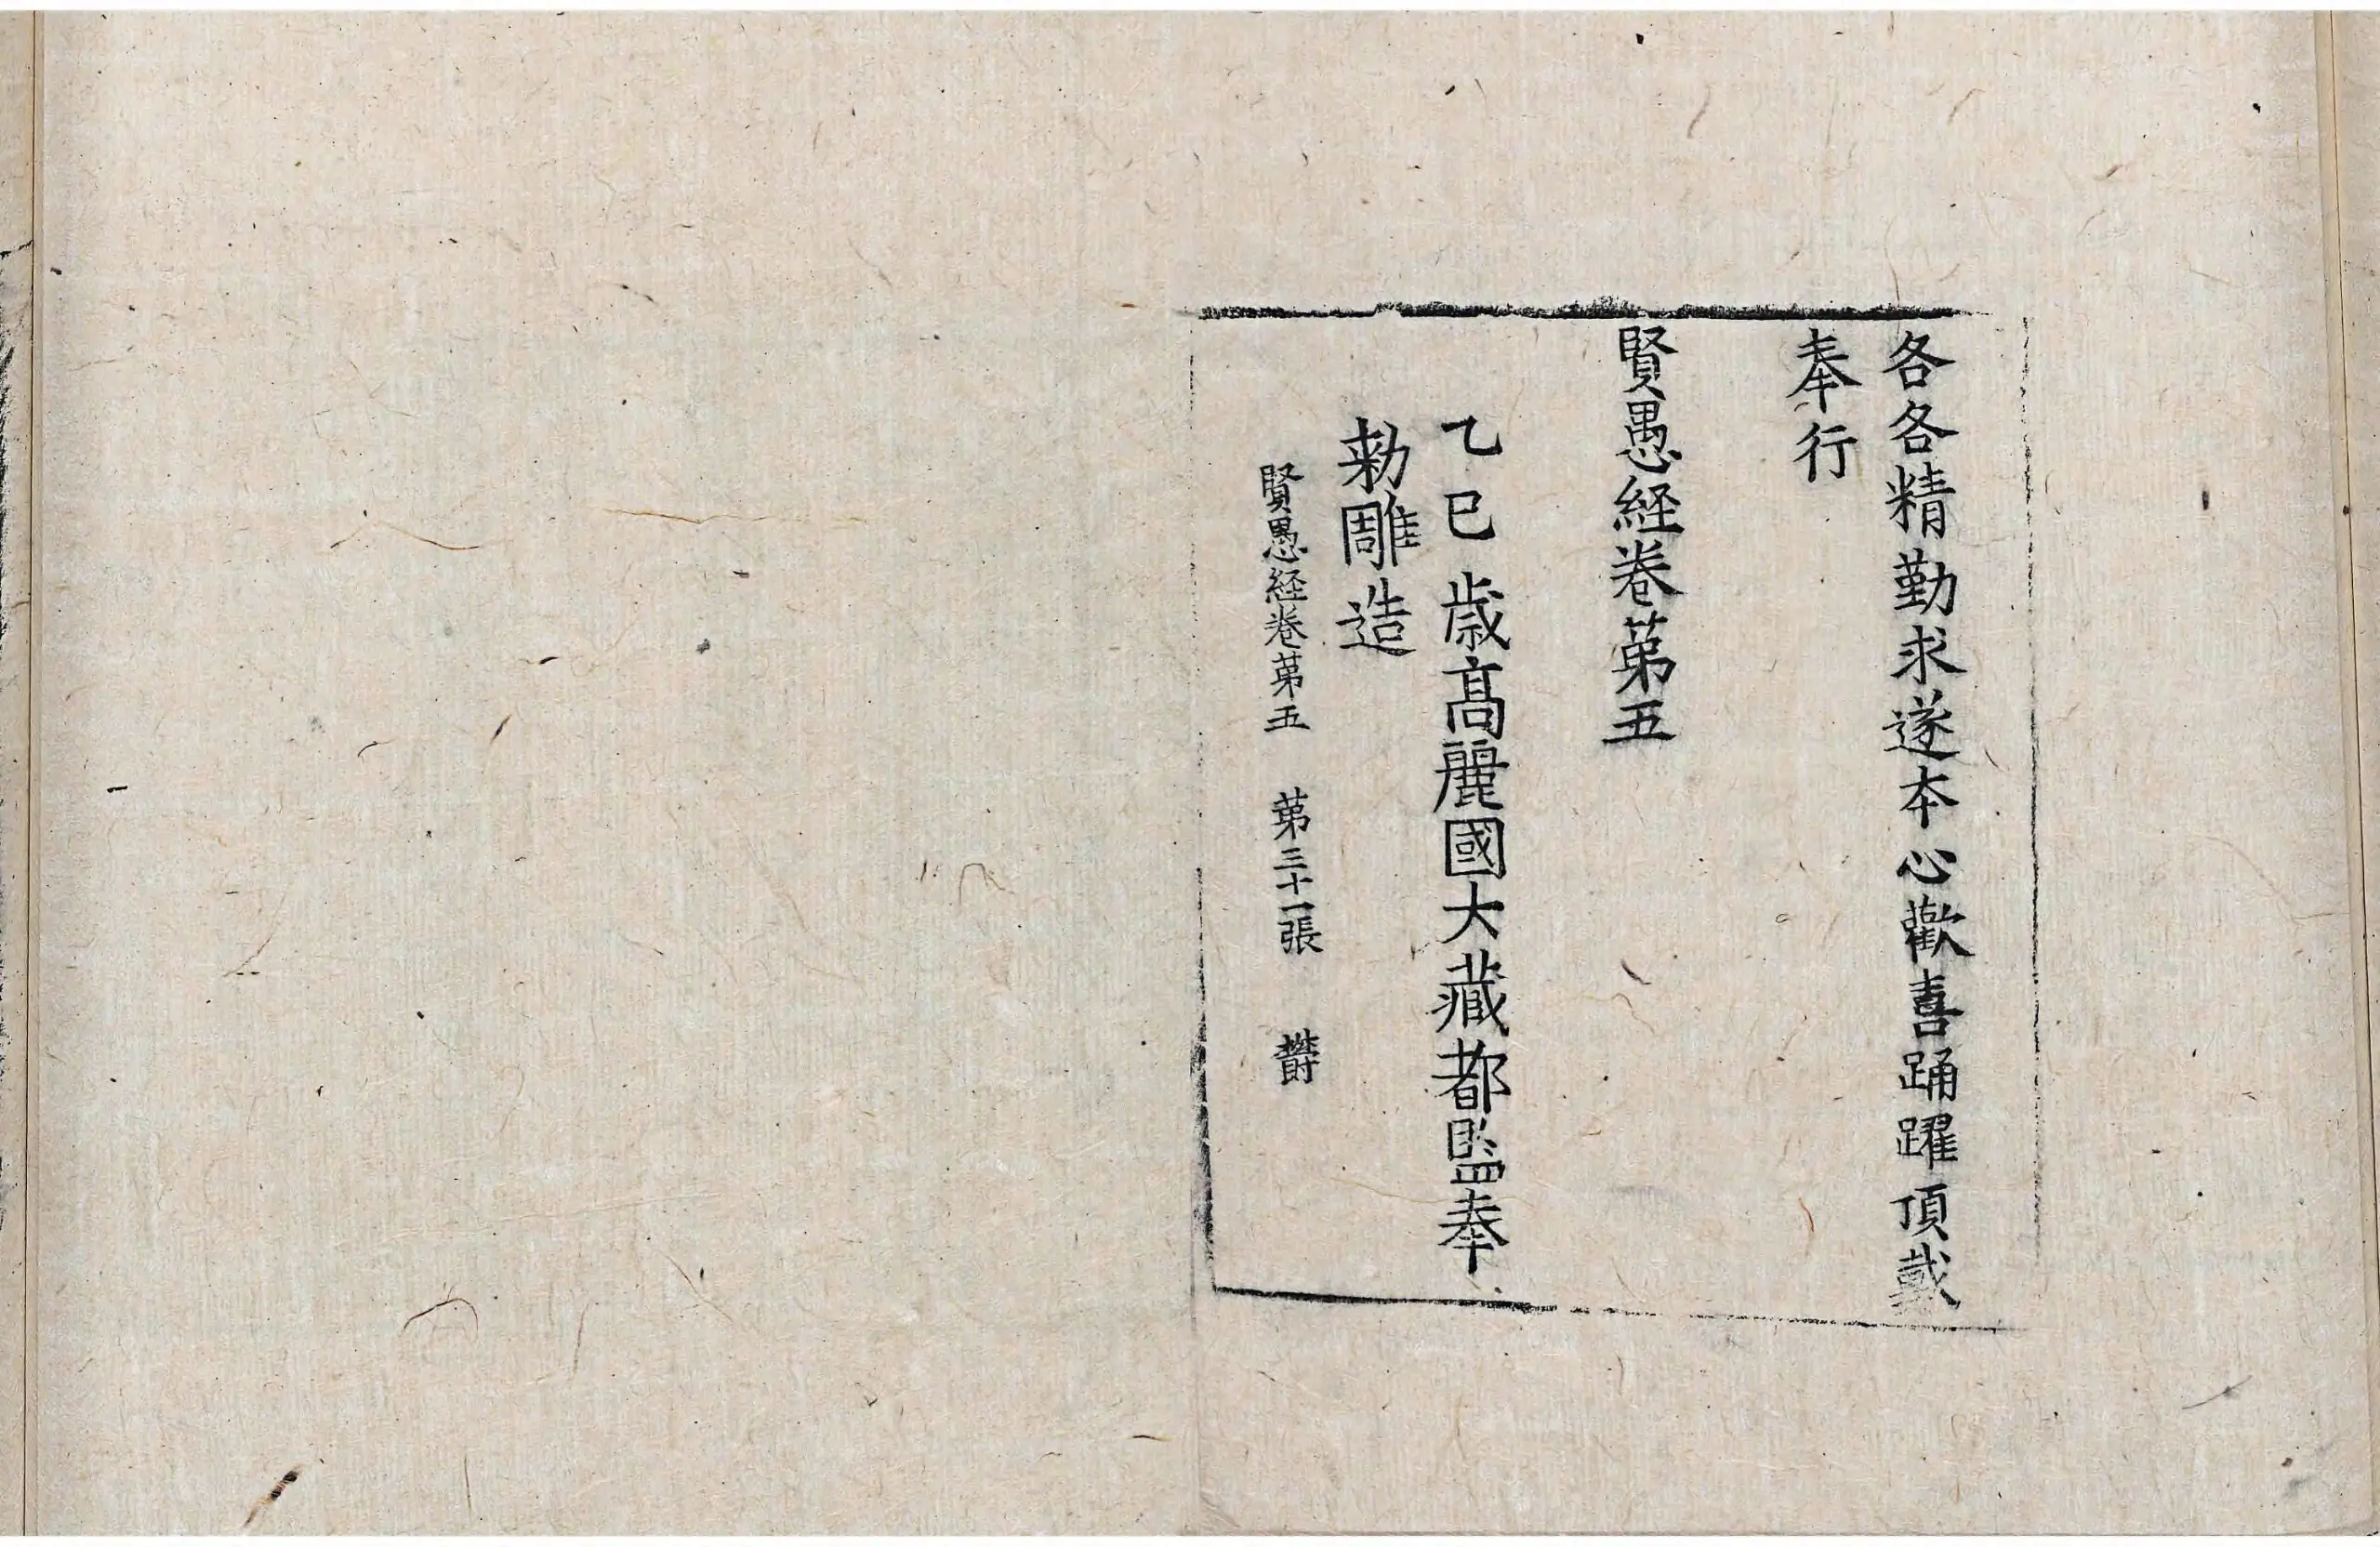 各各精勤求遂本心歡喜踊躍頂戴
奉行
賢愚経卷苐五
乙巳歳髙麗國大藏都監奉
勑雕造
賢愚経卷苐五 苐三十一張 欎